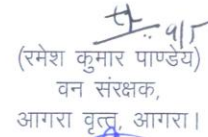 (रमेश कुमार पाण्डेय)
वन संरक्षक,
आगरा वृत्त, आगरा।